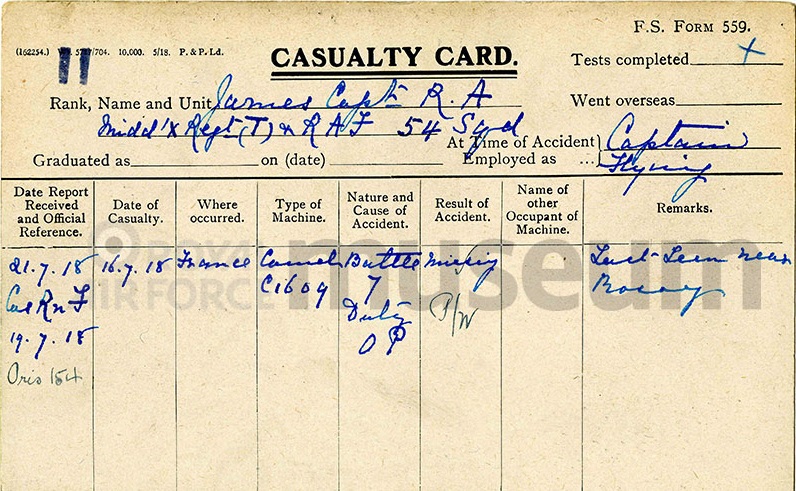 F.S. FORM 559.
(162254.) Wt. 5797/704. 10,000. 5/18. P. & P. Ld.
11
CASUALTY CARD.
Tests completed X
Rank, Name and Unit James Capt R. A
Went overseas
Midd'x Regt (T) & R A F 54 Sqd
At Time of Accident Employed as ... Captain Flying
Graduated as on (date)
Date Report Received and Official Reference.
Date of Casualty.
Where occurred.
Type of Machine.
Nature and Cause of Accident.
Result of Accident.
Name of other Occupant of Machine.
Remarks.
21.7.18 16.7.18 France Camel Battle Missing Last seen near
Cas R n F C1609 7 P/W
19.7.18 Duty
Pris 154 O P
ROYAL AIR FORCE museum